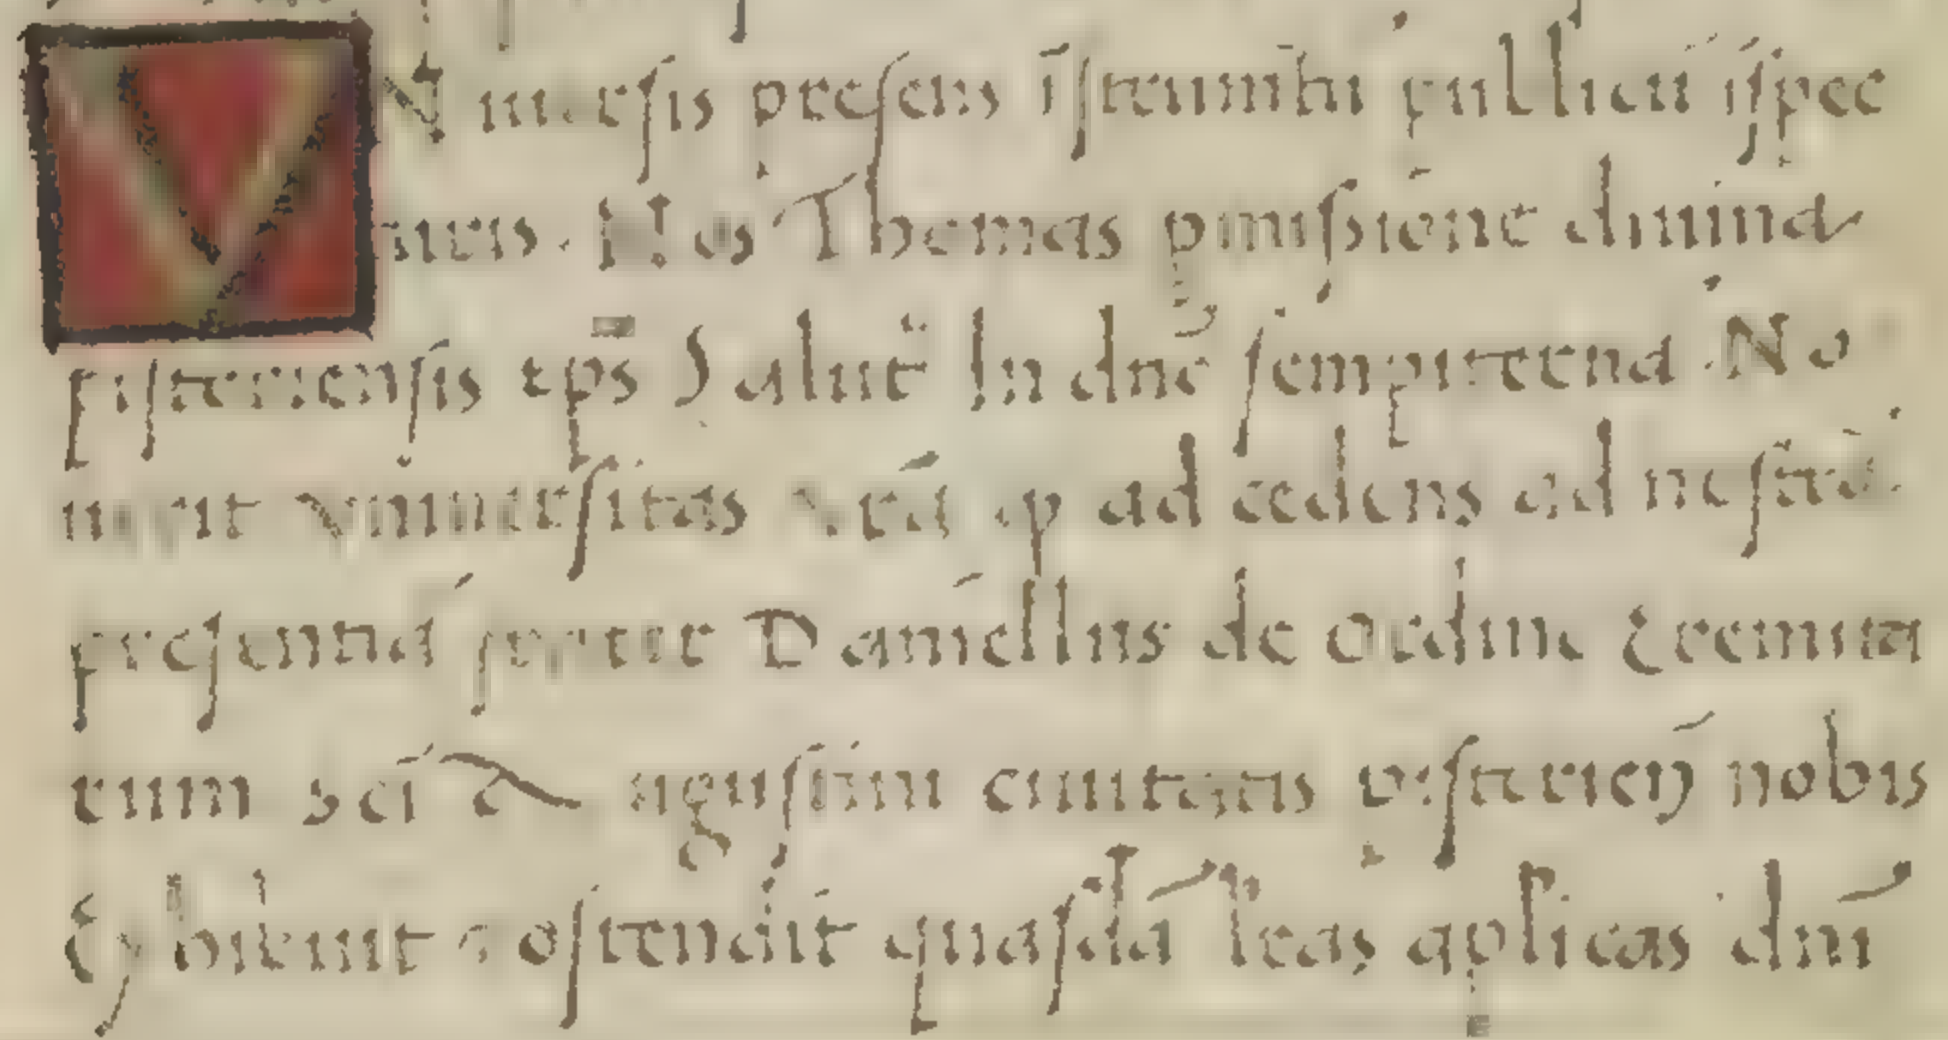 VNiuersis presens īstrumētū pullicū īspec
turis. Nos Thomas pmissione diuina
pisteriensis eps Salutē In dnō sempiternā No
uerit vniuersitas vrā qp ad cedens ad nostrā
presentiā frater Daniellus de ordine Eremita
rum sci Augustini ciuitatis pistorieñ nobis
Exhibuit & ostendit quasdā lras aplicas dni